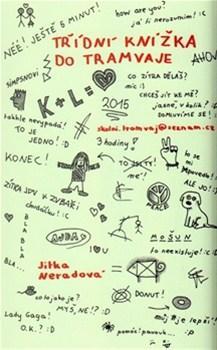 how are you?
NÉÉ! JEŠTĚ 5 MINUT!
já ti nerozumím! :C
TŘÍDNÍ KNÍŽKA
DO TRAMVAJE
SIMPSNOVI
CO ZÍTRA DĚLÁŠ?
mc! :C
K+L=
2015
CHCEŠ JÍT KE MĚ?
jasně, v kolik?
DOMLUVÍME SE!
takhle nevypadá!
TO JE
JEDNO! :D
skolni.tramvaj@seznam.cz
3 hodiny!
KONEC!
to se mi
ALE JO! :D
ZÍTRA JDU K ZUBAŘI
chudáčku! :C
BLA
BLA
BLA...
AUDA
I U
MOŠUN
to neexistuje! :C
Jitka
Neradová
=
co to jako je?
MYŠ, NE!? :D
DONUT!
můj je lepší!
Lady Gaga!
O.K.? :D
pomóc! pavouk... :C